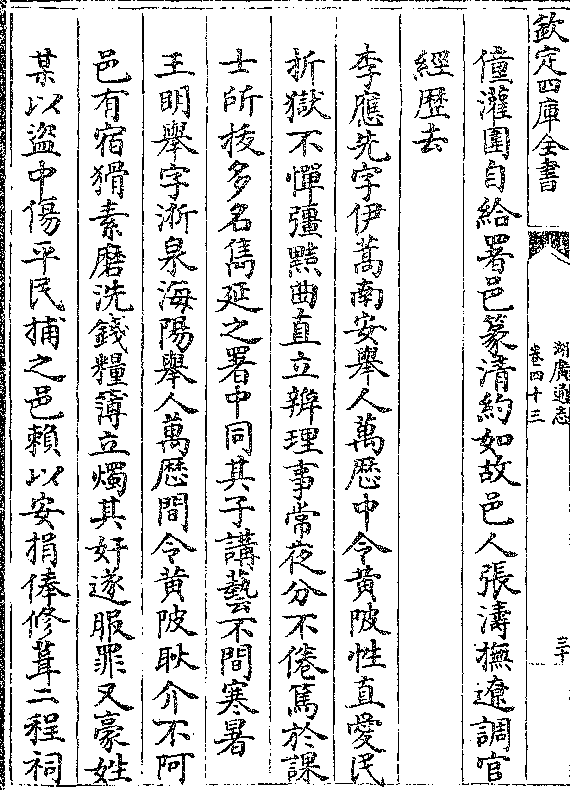 欽定四庫全書
湖廣通志
卷四十三
三十
僮灌園自給署邑篆清約如故邑人張濤撫遼調官
經歴去
李應先字伊蒿南安舉人萬歴中令黄陂性直愛民
折獄不憚彊黠曲直立辨理事常夜分不倦篤於課
士所拔多名雋延之署中同其子講藝不間寒暑
王明舉字淅泉海陽舉人萬歴間令黄陂耿介不阿
邑有宿猾素磨洗錢糧簿立燭其奸遂服罪又豪姓
某以盜中傷平民捕之邑賴以安捐俸修葺二程祠